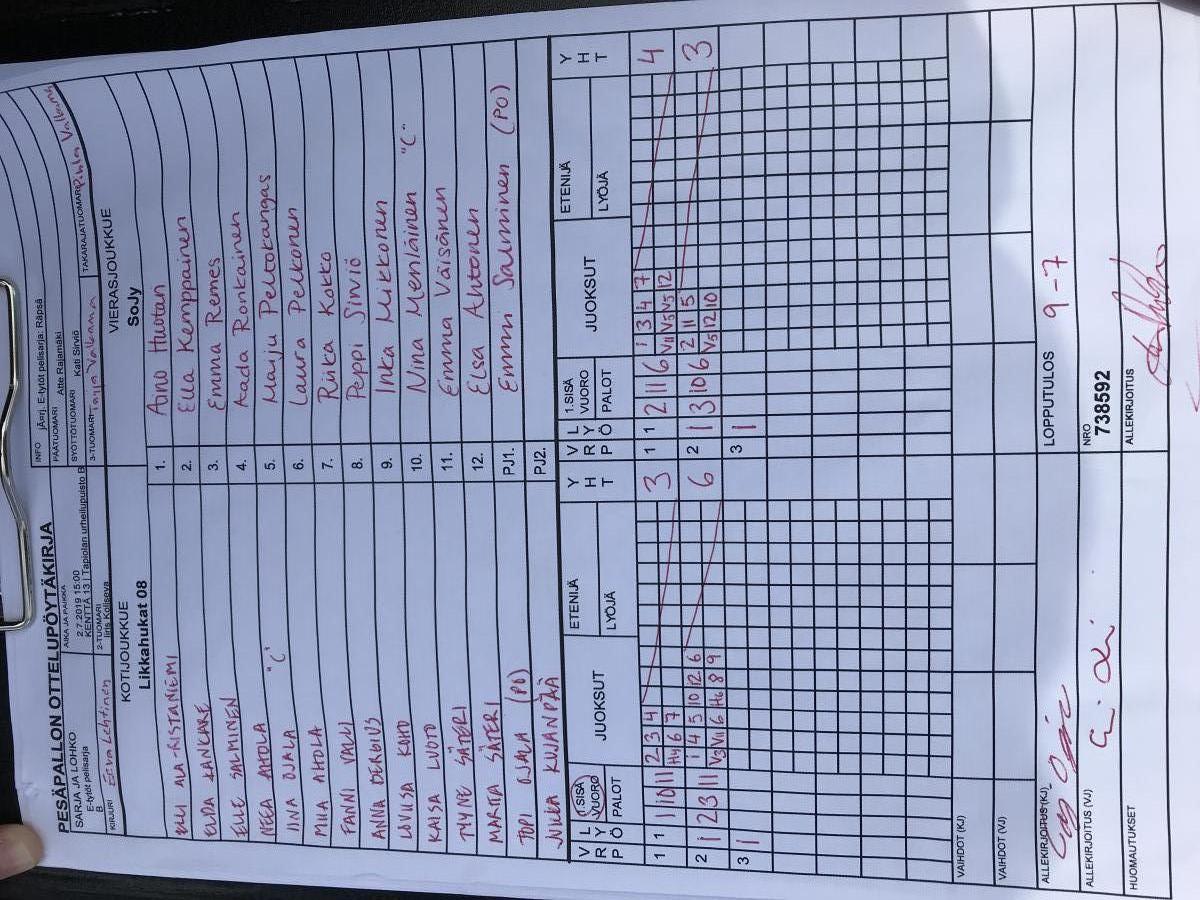 PESÄPALLON OTTELUPÖYTÄKIRJA
SARJA JA LOHKO
E-tytöt pelisarja
B
AIKA JA PAIKKA
2.7.2019 15:00
KENTTÄ 13 | Tapiolan urheilupuisto B
INFO jÄrj. E-tytöt pelisarja: Räpsä
PÄÄTUOMARI Atte Rajamäki
SYÖTTÖTUOMARI Kati Sirviö
KIRJURI Eeva Lehtinen
2-TUOMARI Iiris Koliseva
3-TUOMARI Tayla Valkama
TAKARAJATUOMARI Pihla Valkama
KOTIJOUKKUE
Likkahukat 08
VIERASJOUKKUE
SoJy
ELLI ALA-RISTANIEMI 1. Aino Huotari
ELDA KANCARE 2. Ella Kemppainen
ELLE SALMINEN 3. Emma Remes
NEEA AHOLA "C" 4. Aada Ronkainen
IINA OJALA 5. Maiju Peltokangas
MILA AHOLA 6. Laura Pelkonen
FANNI VALLI 7. Riika Kokko
ANNA DERBIUS 8. Peppi Sirviö
LOVIISA KAHO 9. Inka Mikkonen
KAISA LUOTO 10. Nina Menläinen "C"
TYYNE SÄTERI 11. Emma Väisänen
MARTTA SÄTERI 12. Elsa Ahtonen
TOPI OJALA (PO) PJ1. Emmi Salminen (PO)
NIKLA KUJANPÄÄ PJ2.
V R P L Y Ö 1.SISÄ VUORO PALOT JUOKSUT ETENIJÄ LYÖJÄ Y H T V R P L Y Ö 1.SISÄ VUORO PALOT JUOKSUT ETENIJÄ LYÖJÄ Y H T
1 1 1 10 11 2 3 4 3 1 1 2 11 6 1 3 4 7 4
H4 6 7 V11 V3 V5 12
2 1 2 3 11 1 4 5 10 12 6 6 2 1 3 10 6 2 11 5 3
V3 V11 6 H6 8 9 V5 12 10
3 1 3 1
VAIHDOT (KJ)
VAIHDOT (VJ)
ALLEKIRJOITUS (KJ) LOPPUTULOS 9-7
ALLEKIRJOITUS (VJ) NRO
738592
HUOMAUTUKSET ALLEKIRJOITUS